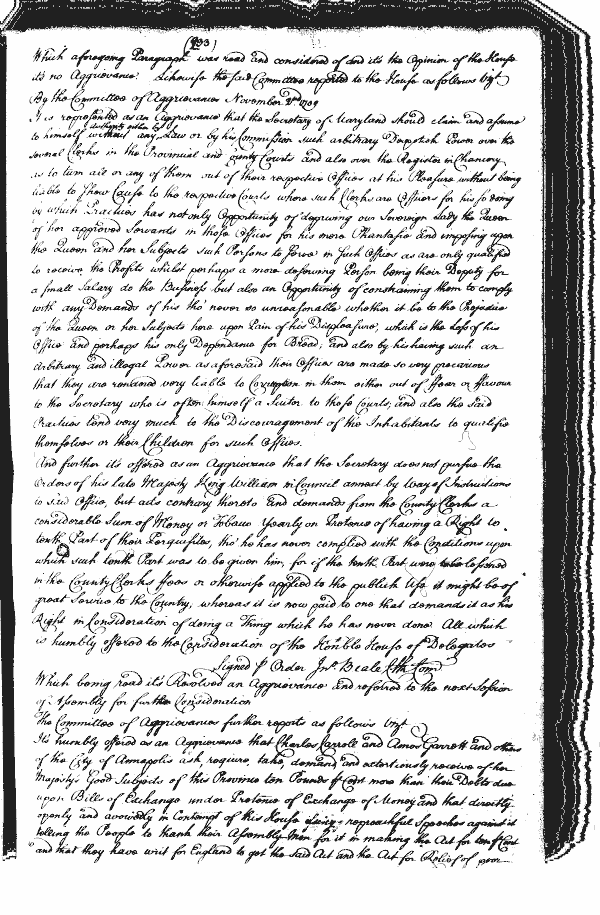 (933)
Which aforegoing Paragraph was read and considered of and it's the Opinion of the House
it's no Aggrievance. Likewise the said Committee reported to the House as follows Vizt
By the Committee of Aggrievances November 2nd 1709
It is represented as an Aggrievance that the Secretary of Maryland should claim and assume
to himself without authority either by any Law or by his Commission such arbitrary Despotick Power over the
several Clerks in the Provincial and County Courts and also over the Register in Chancery,
as to turn all or any of them out of their respective Offices at his Pleasure without being
liable to shew Cause to the respective Courts where such Clerks are Officers for his so doing
by which Practices has not only Opportunity of depriving our Sovereign Lady the Queen
of her approved Servants in those Offices for his mere Phantasie and imposing upon
the Queen and her Subjects such Persons to serve in such Offices as are only qualified
to receive the Profits whilst perhaps a more deserving Person being their Deputy for
a small Salary do the Business but also an Opportunity of constraining them to comply
with any Demands of his tho' never so unreasonable whether it be to the Prejudice
of the Queen or her Subjects here upon Pain of his Displeasure, which is the Loss of his
Office and perhaps his only Dependance for Bread, and also by his having such an
Arbitrary and illegal Power as aforesaid their Offices are made so very precarious
that they are rendered very liable to Corruption in them either out of ffear or ffavour
to the Secretary who is often himself a Suitor to those Courts, and also the said
Practices tend very much to the Discouragement of the Inhabitants to qualifie
themselves or their Children for such Offices.
And further it's offered as an Aggrievance that the Secretary does not pursue the
Orders of his late Majesty King William in Council annext by Way of Instructions
to said Office, but acts contrary thereto and demands from the County Clerks a
considerable Sum of Money or Tobacco Yearly on Pretence of having a Right to
tenth Part of their Perquisites, tho' he has never complied with the Conditions upon
which such tenth Part was to be given him, for if the tenth Part were to be lessened
in the County Clerks ffees or otherwise applied to the publick Use it might be of
great Service to the Country, whereas it is now paid to one that demands it as his
Right in Consideration of doing a Thing which he has never done. All which
is humbly offered to the Consideration of the Honble House of Delegates
Signed p Order Jno. Beale Clk Com
Which being read its Resolved an Aggrievance and referred to the next Session
of Assembly for further Consideration
The Committee of Aggrievances further reports as follows Vizt.
It's humbly offered as an Aggrievance that Charles Carroll and Amos Garrett and others
of the City of Annapolis ask, require, take, demand and extortiously receive of her
Majesty's Good Subjects of this Province ten Pounds p Cent more than their Debts due
upon Bills of Exchange under Pretence of Exchange of Money and that directly
openly and avowedly in Contempt of this House using reproachful Speeches against it
telling the People to thank their Assembly Men for it in making the Act for ten p Cent
and that they have writ for England to get the said Act and the Act for Relief of poor